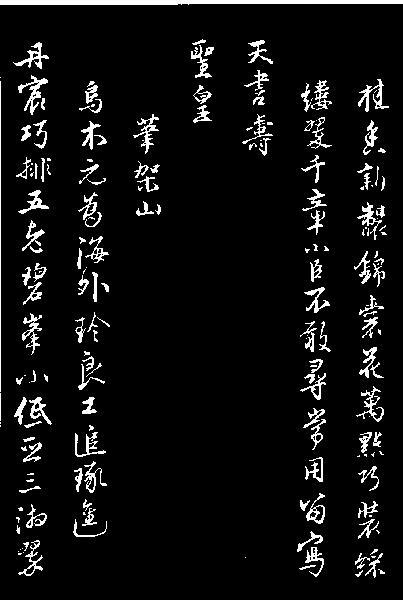 桂香新製錦裳花萬點巧裝綵
縷翠千章小臣不敢尋常用留寫
天書壽
聖皇
筆架山
烏木元為海外珍良工追琢進
丹宸巧排五老碧峯小低亞三湘翠